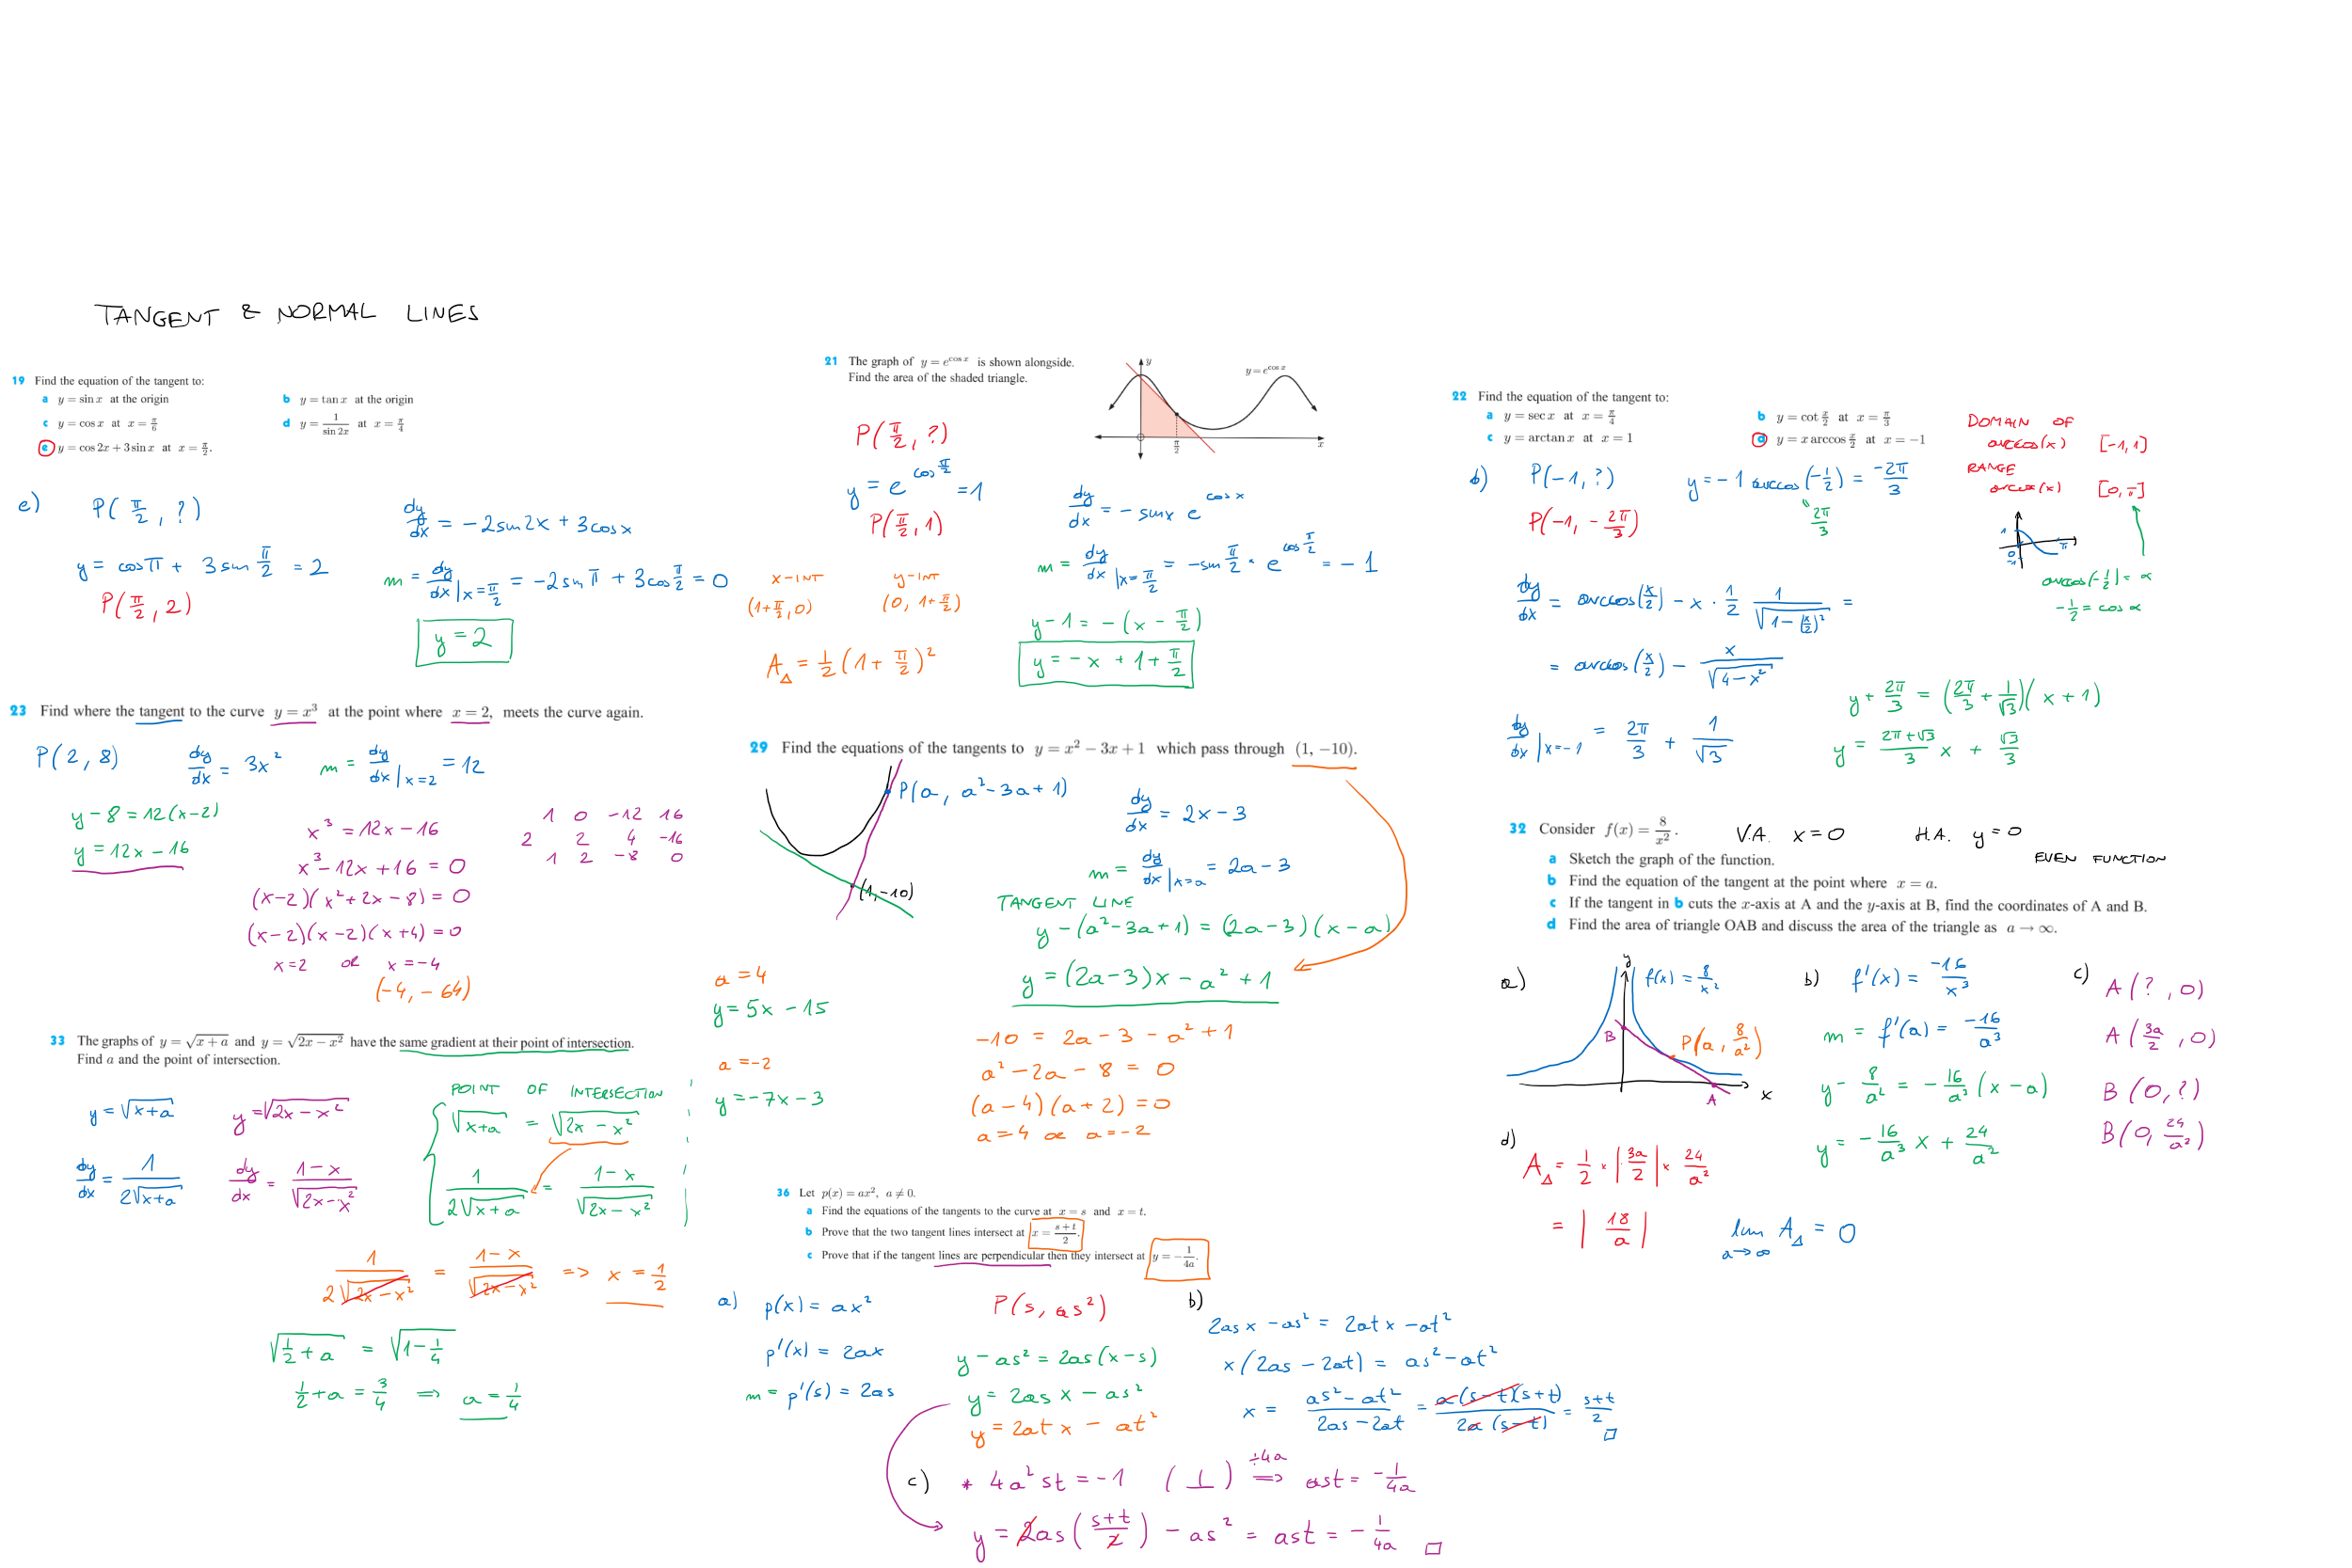 TANGENT & NORMAL LINES
19 Find the equation of the tangent to:
a y = sin x at the origin
b y = tan x at the origin
c y = cos x at x = π/6
d y = 1/(sin 2x) at x = π/4
e y = cos 2x + 3 sin x at x = π/2.
e)
P(π/2, ?)
y = cos π + 3 sin π/2 = 2
P(π/2, 2)
dy/dx = -2 sin 2x + 3 cos x
m = dy/dx |x=π/2 = -2 sin π + 3 cos π/2 = 0
y = 2
21 The graph of y = e^(cos x) is shown alongside.
Find the area of the shaded triangle.
y
y = e^(cos x)
π/2
x
P(π/2, ?)
y = e^(cos π/2) = 1
P(π/2, 1)
dy/dx = - sin x e^(cos x)
m = dy/dx |x=π/2 = -sin π/2 · e^(cos π/2) = -1
x-INT
(1+π/2, 0)
y-INT
(0, 1+π/2)
y-1 = -(x - π/2)
y = -x + 1 + π/2
A△ = 1/2 (1 + π/2)²
22 Find the equation of the tangent to:
a y = sec x at x = π/4
b y = cot x/2 at x = π/3
c y = arctan x at x = 1
d y = x arccos x/2 at x = -1
DOMAIN OF
arccos(x) [-1, 1]
RANGE
arccos(x) [0, π]
d)
P(-1, ?)
y = -1 arccos(-1/2) = -2π/3
2π/3
P(-1, -2π/3)
1
0
-1
π
arccos(-1/2) = α
-1/2 = cos α
dy/dx = arccos(x/2) - x · 1/2 1/√(1-(x/2)²) =
= arccos(x/2) - x/√(4-x²)
dy/dx |x=-1 = 2π/3 + 1/√3
y + 2π/3 = (2π/3 + 1/√3)(x + 1)
y = (2π+√3)/3 x + √3/3
23 Find where the tangent to the curve y = x³ at the point where x = 2, meets the curve again.
P(2, 8)
dy/dx = 3x²
m = dy/dx |x=2 = 12
y - 8 = 12(x-2)
y = 12x - 16
x³ = 12x - 16
x³ - 12x + 16 = 0
(x-2)(x² + 2x - 8) = 0
(x-2)(x-2)(x+4) = 0
x=2 OR x=-4
(-4, -64)
1 0 -12 16
2 2 4 -16
1 2 -8 0
29 Find the equations of the tangents to y = x² - 3x + 1 which pass through (1, -10).
P(a, a²-3a+1)
(1, -10)
dy/dx = 2x - 3
m = dy/dx |x=a = 2a - 3
TANGENT LINE
y - (a²-3a+1) = (2a-3)(x-a)
y = (2a-3)x - a² + 1
-10 = 2a - 3 - a² + 1
a² - 2a - 8 = 0
(a-4)(a+2) = 0
a=4 or a=-2
a = 4
y = 5x - 15
a = -2
y = -7x - 3
32 Consider f(x) = 8/x².
V.A. x = 0
H.A. y = 0
EVEN FUNCTION
a Sketch the graph of the function.
b Find the equation of the tangent at the point where x = a.
c If the tangent in b cuts the x-axis at A and the y-axis at B, find the coordinates of A and B.
d Find the area of triangle OAB and discuss the area of the triangle as a → ∞.
a)
y
f(x) = 8/x²
B
P(a, 8/a²)
A
x
b)
f'(x) = -16/x³
m = f'(a) = -16/a³
y - 8/a² = -16/a³ (x-a)
y = -16/a³ x + 24/a²
c)
A(?, 0)
A(3a/2, 0)
B(0, ?)
B(0, 24/a²)
d)
A△ = 1/2 × |3a/2| × 24/a²
= |18/a|
lim a→∞ A△ = 0
33 The graphs of y = √(x+a) and y = √(2x-x²) have the same gradient at their point of intersection.
Find a and the point of intersection.
y = √(x+a)
y = √(2x-x²)
dy/dx = 1/(2√(x+a))
dy/dx = (1-x)/√(2x-x²)
POINT OF INTERSECTION
√(x+a) = √(2x-x²)
1/(2√(x+a)) = (1-x)/√(2x-x²)
1/(2√(2x-x²)) = (1-x)/√(2x-x²) => x = 1/2
√(1/2 + a) = √(1-1/4)
1/2 + a = 3/4 => a = 1/4
36 Let p(x) = ax², a ≠ 0.
a Find the equations of the tangents to the curve at x = s and x = t.
b Prove that the two tangent lines intersect at x = (s+t)/2.
c Prove that if the tangent lines are perpendicular then they intersect at y = -1/(4a).
a)
p(x) = ax²
p'(x) = 2ax
m = p'(s) = 2as
P(s, as²)
y - as² = 2as(x-s)
y = 2as x - as²
y = 2at x - at²
b)
2as x - as² = 2at x - at²
x(2as - 2at) = as² - at²
x = (as² - at²)/(2as - 2at) = a(s-t)(s+t)/(2a(s-t)) = (s+t)/2 □
c)
* 4a²st = -1 (⊥) ÷4a => ast = -1/(4a)
y = 2as((s+t)/2) - as² = ast = -1/(4a) □